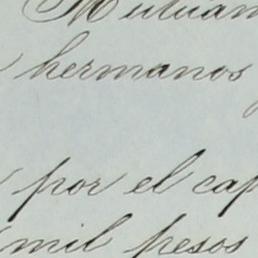 Mutuam
hermanos
por el cap
mil pesos